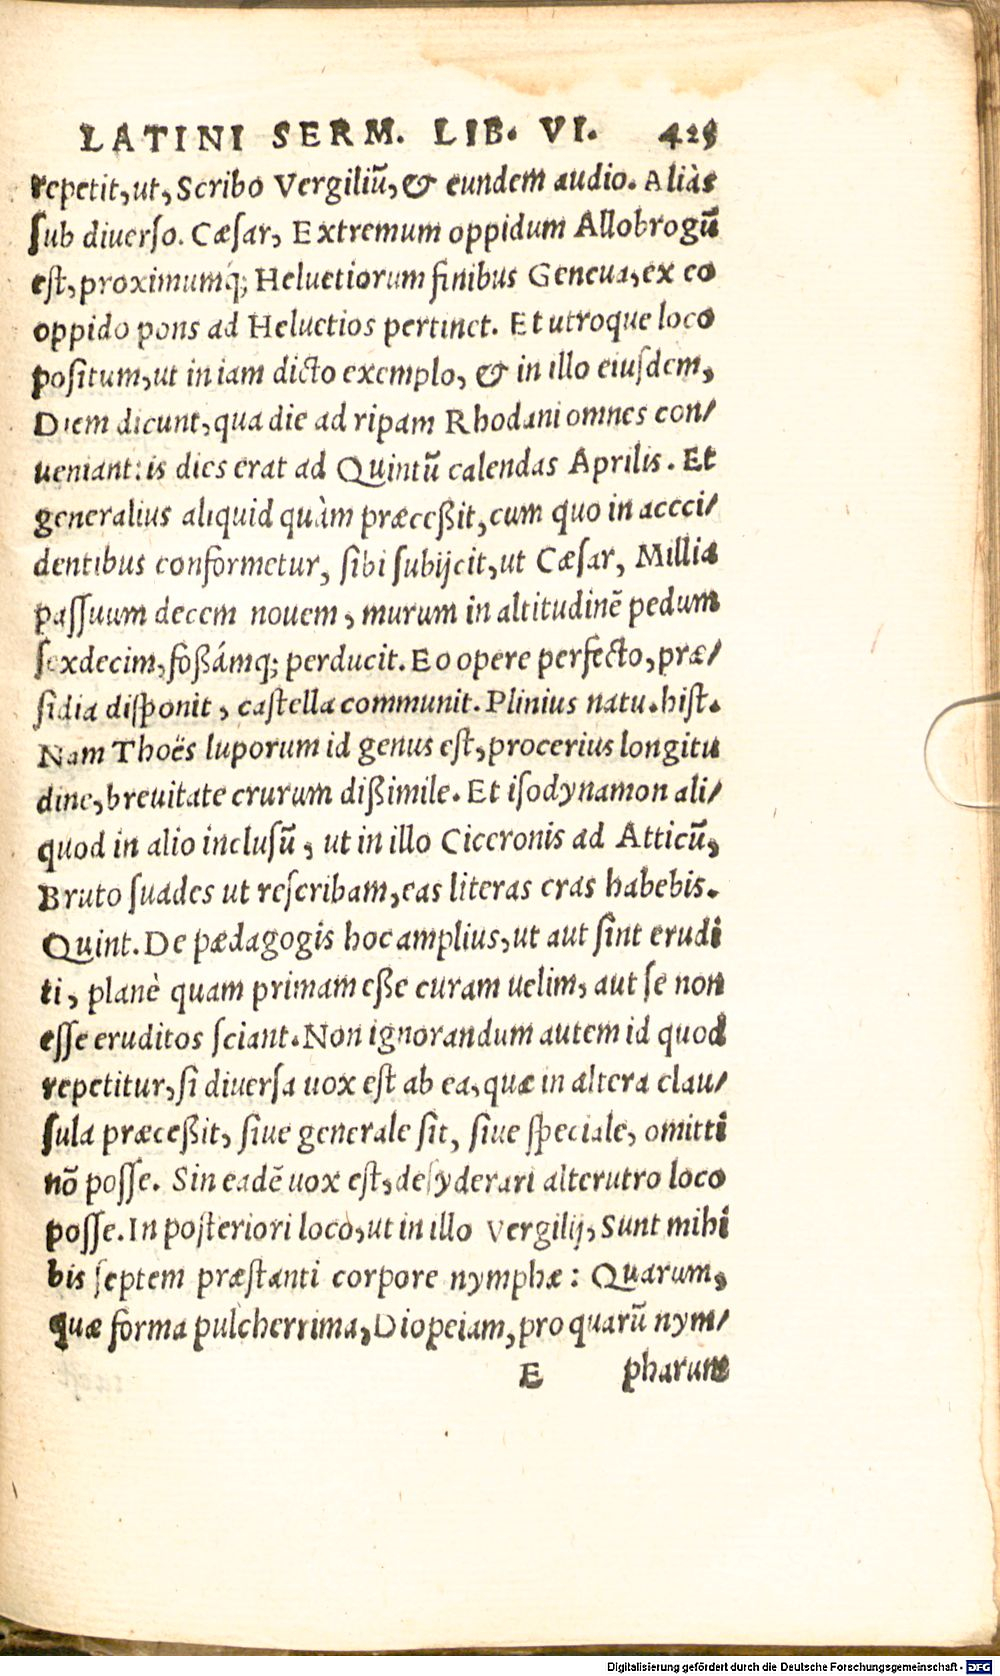 LATINI SERM. LIB. VI. 425
repetit, ut, Scribo Vergiliū, & eundem audio. Aliàs
sub diverso. Cæsar, Extremum oppidum Allobrogū
est, proximumq́; Heluetiorum finibus Geneua, ex eo
oppido pons ad Heluetios pertinet. Et utroque loco
positum, ut in iam dicto exemplo, & in illo eiusdem,
Diem dicunt, qua die ad ripam Rhodani omnes con/
ueniant: is dies erat ad Quintū calendas Aprilis. Et
generalius aliquid quàm præceßit, cum quo in accci/
dentibus conformetur, sibi subijcit, ut Cæsar, Millia
passuum decem nouem, murum in altitudinē pedum
sexdecim, foßámq; perducit. Eo opere perfecto, præ/
sidia disponit, castella communit. Plinius natu. hist.
Nam Thoës luporum id genus est, procerius longitu
dine, breuitate crurum dißimile. Et isodynamon ali/
quod in alio inclusū, ut in illo Ciceronis ad Atticū,
Bruto suades ut rescribam, eas literas cras habebis.
Quint. De pædagogis hoc amplius, ut aut sint erudi
ti, planè quam primam eße curam uelim, aut se non
esse eruditos sciant. Non ignorandum autem id quod
repetitur, si diuersa uox est ab ea, quæ in altera clau/
sula præceßit, siue generale sit, siue speciale, omitti
nō posse. Sin eadē uox est, desyderari alterutro loco
posse. In posteriori loco, ut in illo Vergilij, Sunt mihi
bis septem præstanti corpore nymphæ: Quarum,
quæ forma pulcherrima, Diopeiam, pro quarū nym/
E pharum
Digitalisierung gefördert durch die Deutsche Forschungsgemeinschaft - DFG